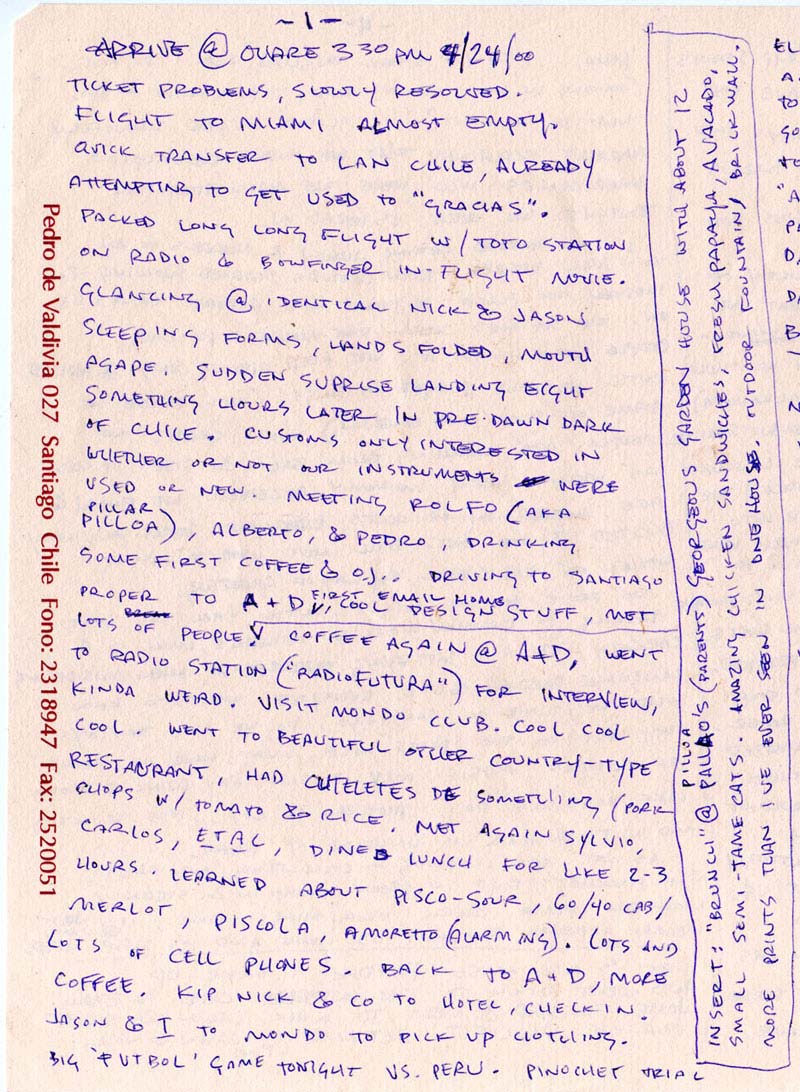 -1-
ARRIVE @ O'HARE 330 PM 4/24/00
TICKET PROBLEMS, SLOWLY RESOLVED.
FLIGHT TO MIAMI ALMOST EMPTY.
QUICK TRANSFER TO LAN CHILE, ALREADY
ATTEMPTING TO GET USED TO "GRACIAS".
PACKED LONG LONG FLIGHT W/ TOTO STATION
ON RADIO & BOWFINGER IN-FLIGHT MOVIE.
GLANCING @ IDENTICAL NICK & JASON
SLEEPING FORMS, HANDS FOLDED, MOUTH
AGAPE. SUDDEN SUPRISE LANDING EIGHT
SOMETHING HOURS LATER IN PRE-DAWN DARK
OF CHILE. CUSTOMS ONLY INTERESTED IN
WHETHER OR NOT OUR INSTRUMENTS WERE
USED OR NEW. MEETING ROLFO (AKA
PILLAR
PILLOA), ALBERTO, & PEDRO, DRINKING
SOME FIRST COFFEE & O.J.. DRIVING TO SANTIAGO
PROPER TO A+D, FIRST EMAIL HOME, COOL DESIGN STUFF, MET
LOTS OF PEOPLE. COFFEE AGAIN @ A+D, WENT
TO RADIO STATION ("RADIO FUTURA") FOR INTERVIEW,
KINDA WEIRD. VISIT MONDO CLUB. COOL COOL
COOL. WENT TO BEAUTIFUL OTHER COUNTRY-TYPE
RESTAURANT, HAD CHTELETES DE SOMETHING (PORK
CHOPS W/ TOMATO & RICE. MET AGAIN SYLVIO,
CARLOS, ET AL, DINE LUNCH FOR LIKE 2-3
HOURS. LEARNED ABOUT PISCO-SOUR, 60/40 CAB/
MERLOT, PISCOLA, AMORETTO (ALARMING). LOTS AND
LOTS OF CELL PHONES. BACK TO A+D, MORE
COFFEE. KIP NICK & CO TO HOTEL, CHECK IN.
JASON & I TO MONDO TO PICK UP CLOTHING.
BIG 'FUTBOL' GAME TONIGHT VS. PERU. PINOCHET TRIAL
INSERT: "BRUNCH" @ PILLOA PALLAO'S (PARENTS) GEORGEOUS GARDEN HOUSE WITH ABOUT 12
SMALL SEMI-TAME CATS. AMAZING CHICKEN SANDWICHES, FRESH PAPAYA, AVACADO,
MORE PRINTS THAN I'VE EVER SEEN IN ONE HOUSE. OUTDOOR FOUNTAIN, BRICK WALL.
Pedro de Valdivia 027 Santiago Chile Fono: 2318947 Fax: 2520051